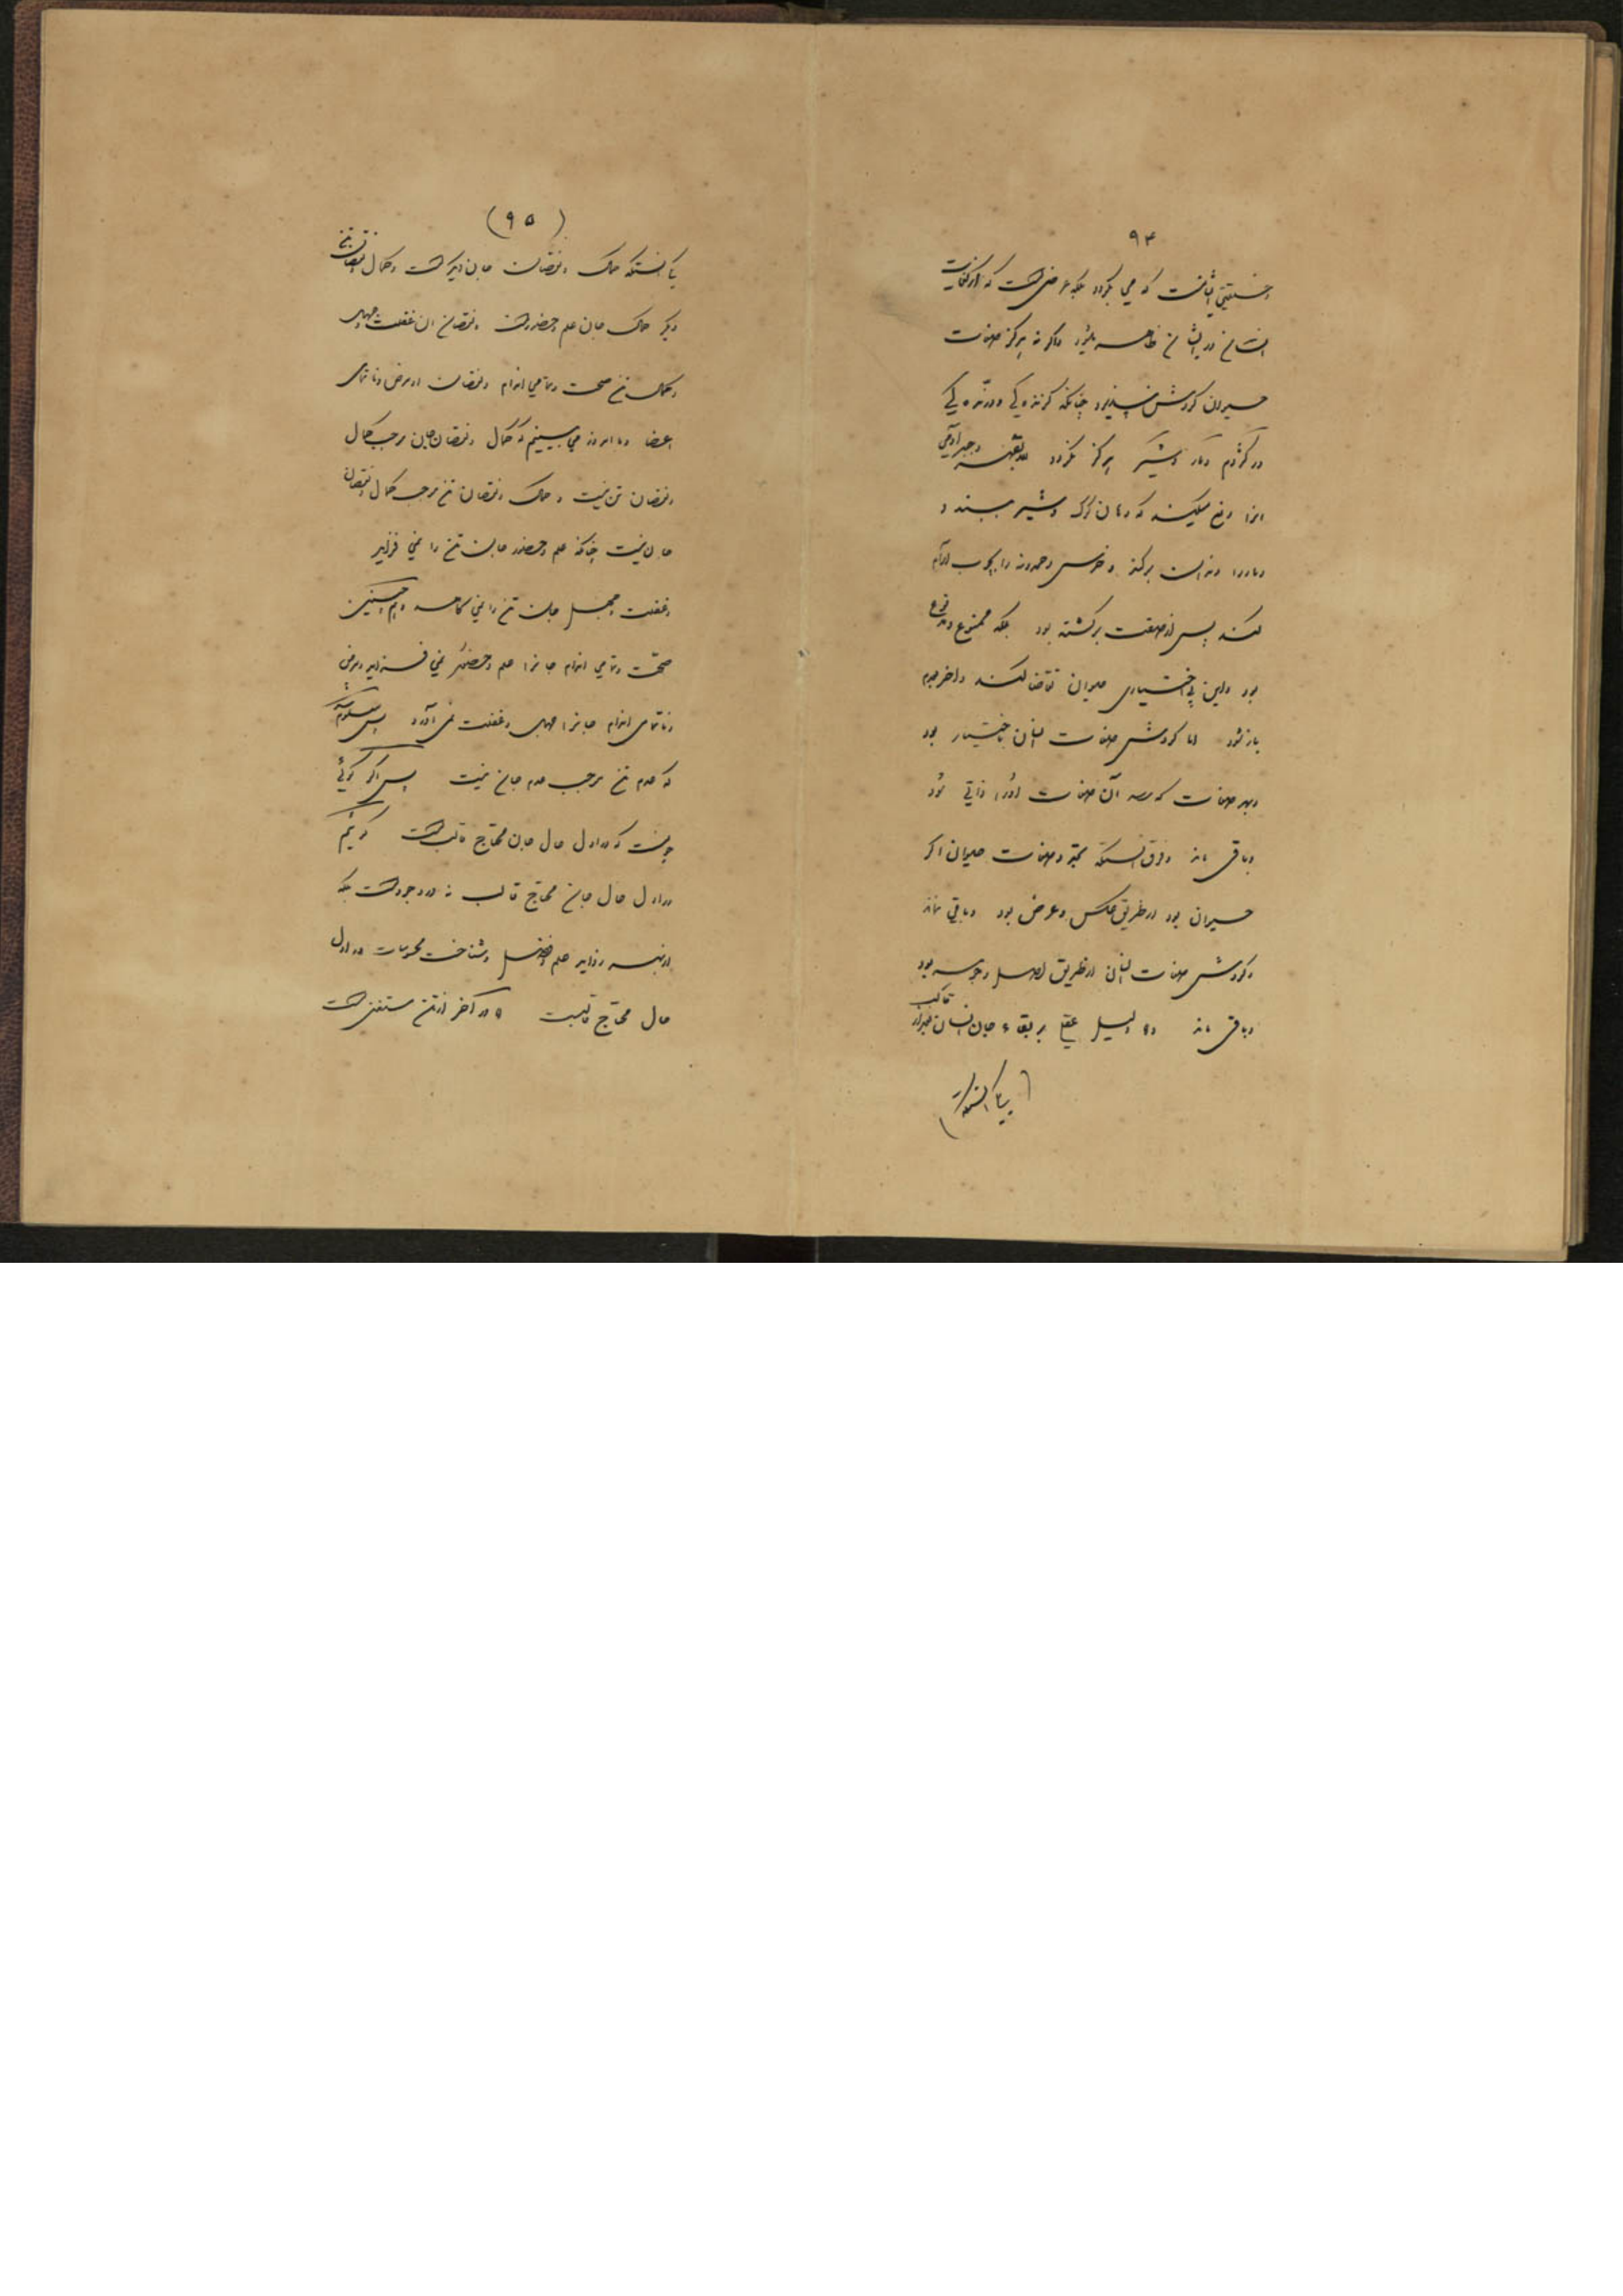 ۹۴
حقیقتی ایشانست که می بگردد بلکه عرضی است که از کفایت
انسان در ایشان ظاهر میشود واگرنه هرگز صفات
حیوان گردش نپذیرد چنانکه گزنده‌گی و درنده‌گی
در کژدم و مار و شیر هرگز نگردد الا بقهر و جبر آدمی
انرا دفع میکند که دهان گرگ و شیر ببندد و
و مار را دندان برکند و خرس و حمدونه را بچوب ادرام
کند پس از صفت برگشته بود بلکه ممنوع و مدفوع
بود و این بی اختیاری حیوان تقاضا کند و اخر هم
باز شود اما گردش صفات انسان باختیار بود
و بهر صفات که رسد آن صفات او را ذاتی شود
و باقی ماند و فرق انستکه تغیر و صفات حیوان اگر
حیوان بود از طریق عکس و عرض بود و باقی نماند
و گردش صفات انسان از طریق اصل و جوهر بود
و باقی ماند و دلیل عقلی بر بقاء جان انسان بعد از قالب
یا انستکه
(۹۵)
یا انستکه کمال و نقصان جان دیگر است و کمال و نقصان تن
دیگر کمال جان علم و حضور است و نقصان ان غفلت و جهل
و کمال تن صحت و تمامی اندام و نقصان او مرض و ناتمامی
اعضا و ما امروز می بینیم که کمال و نقصان جان موجب کمال
و نقصان تن نیست و کمال و نقصان تن موجب کمال و نقصان
جان نیست چنانکه علم و حضور جان تن را نمی فزاید
و غفلت و جهل جان تن را نمی کاهد و هم چنین
صحت و تمامی اندام جانرا علم و حضور نمی فزاید و مرض
و ناتمامی اندام جانرا جهل و غفلت نمی آورد پس معلوم شد
که عدم تن موجب عدم جان نیست پس اگر گوئی
چونست که در اول حال جان محتاج قالب است گوئیم
در اول حال جان محتاج قالب نه در وجود است بلکه
از بهر زواید علم و فضل و شناخت محسوسات در اول
حال محتاج قالبست و در آخر از تن مستغنی است